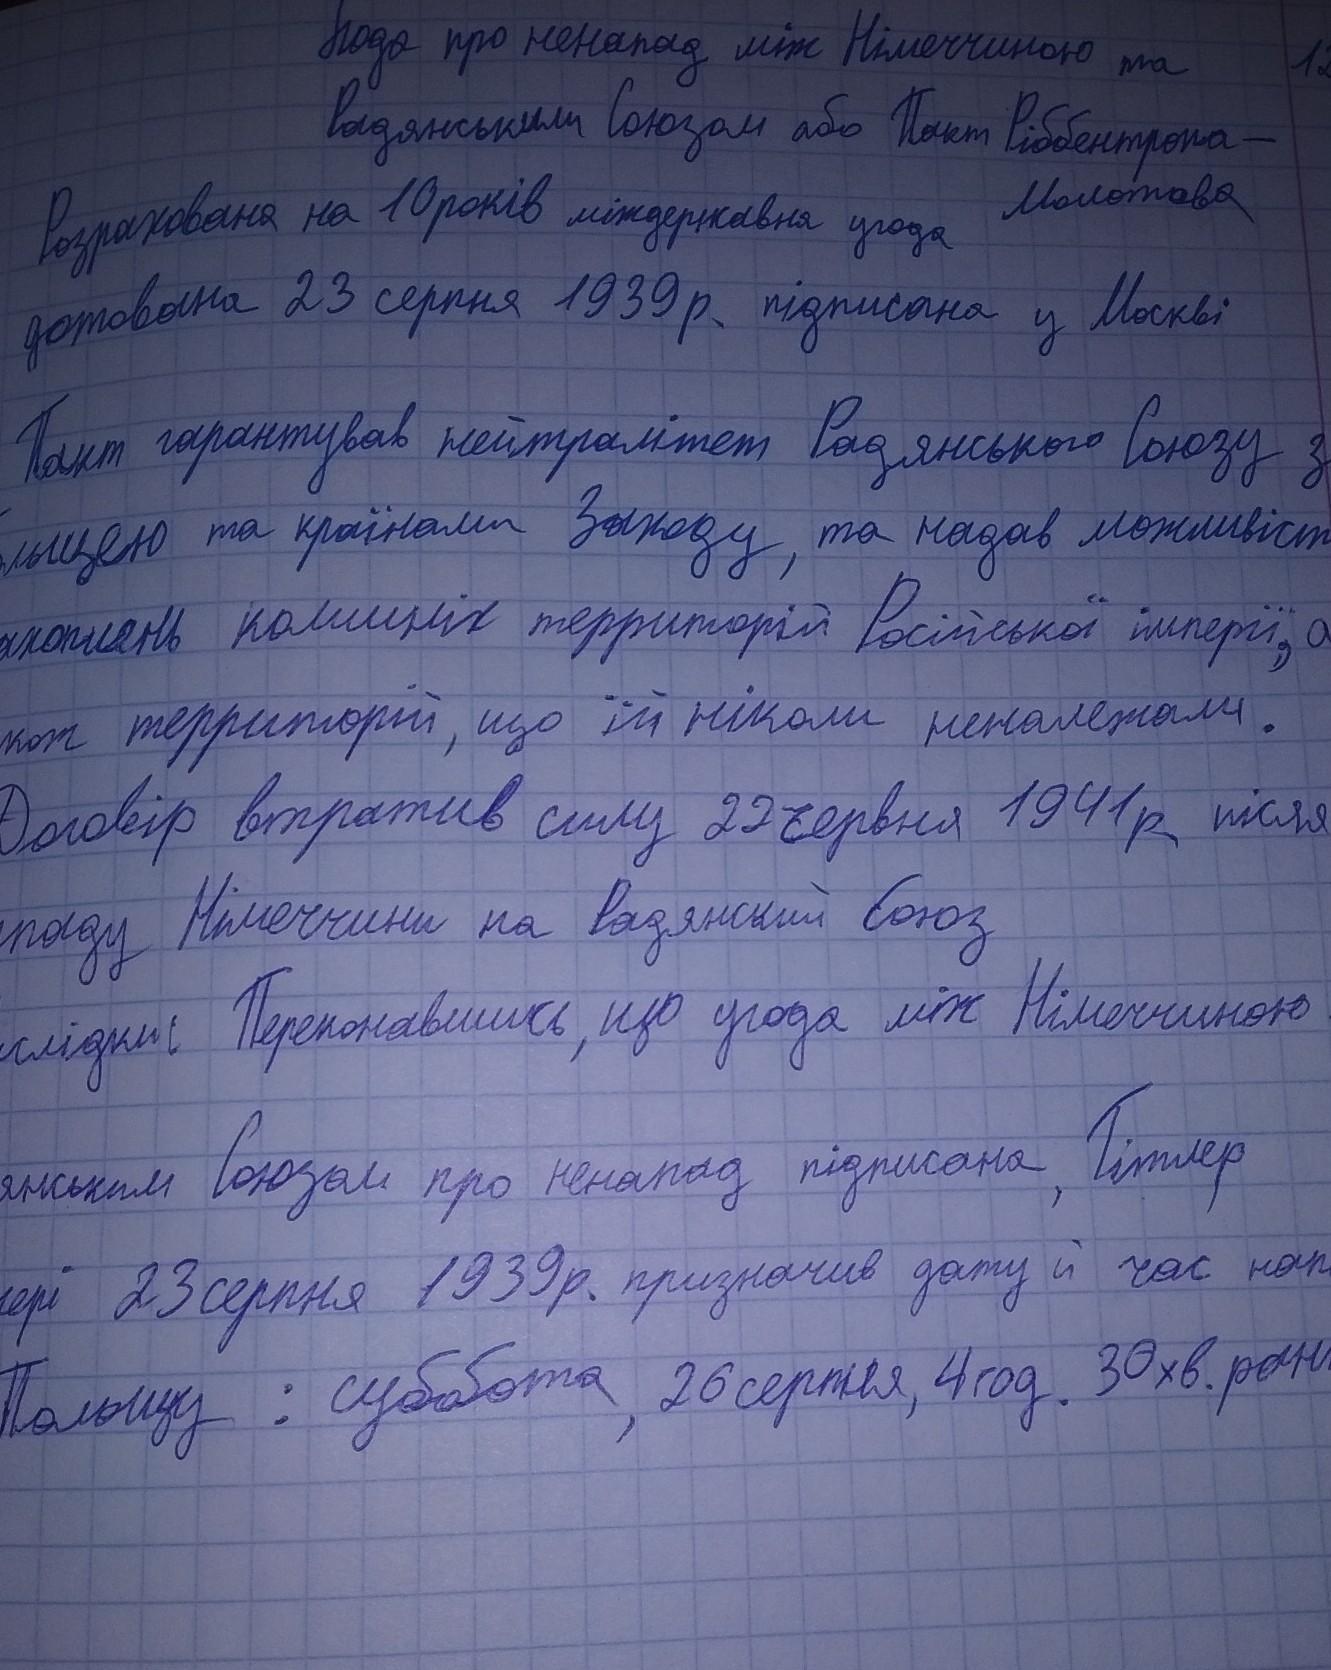 Угода про ненапад між Німеччиною та 12
Радянським Союзом або Пакт Ріббентропа—
Молотова
Розрахована на 10 років міждержавна угода
датована 23 серпня 1939р. підписана у Москві
Пакт гарантував нейтралітет Радянського Союзу з
льщею та країнами Заходу, та надав можливіст
ахоплень колишніх территорій Російської імперії, а
кож территорій, що їй ніколи неналежали.
Договір втратив силу 22 червня 1941р. після
паду Німеччини на Радянский Союз
аслідки: Переконавшись, що угода між Німеччиною
янським Союзом про ненапад підписана, Гітлер
чері 23 серпня 1939р. призначив дату й час нап
Польщу : суббота, 26 серпня, 4 год. 30 хв. ран